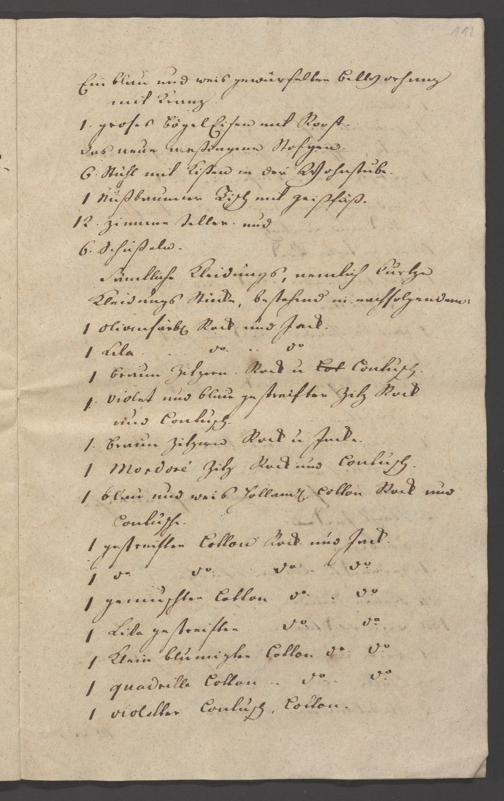 Ein blau und weis gewürfelter bettvorhang
mit Kranz
1. groses bögel Eisen mit Roost.
das neue messingene
6. Stühl mit Kissen in der Wohnstube.
1 Nußbaumer Tisch mit geisfüß.
12. zinnene Teller. und
6. Schüßeln.
Sämtliche Kleidungs, nemlich Kurtze
Kleidungs Stücke, bestehend in nachfolgendem:
1 olivenfarb Rock und Jack.
1 Lila .. do .. do
1 braun zitzern Rock u Contusch.
1. violet und blau gestreifter Zitz Rock
und Contusch
1. braun zitzern Rock u Jacke.
1 Mordoré Zitz Rock und Contusch.
1 blau und weis Holland. Cotton Rock und
Contusche.
1 gestreifter Cotton Rock und Jack.
1 do do do do
1 Cotton do . do
1 Lila gestreifter do do
1 Klein blumigter Cotton do do
1 quadrille Cotton .. do .. do
1 violetter Contusch, Cotton.